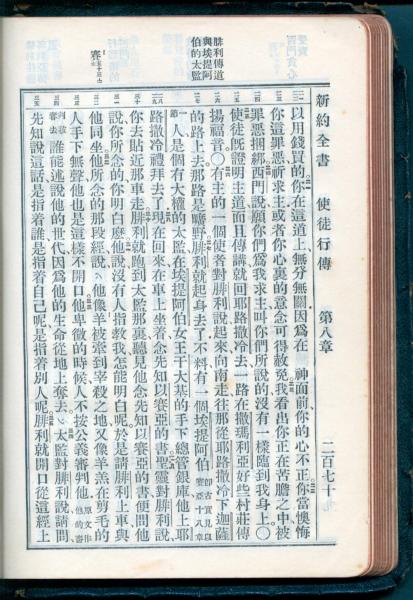 腓利傳道
與埃提阿
伯的太監
新約全書 使徒行傳 第八章 二百七十九
以用錢買的你在這道上無分無關因爲在 神面前你的心不正你當懊悔
你這罪惡祈求主或者你心裏的意念可得赦免我看出你正在苦膽之中被
罪惡捆綁西門說願你們爲我求主叫你們所說的沒有一樣臨到我身上〇
使徒旣證明主道而且傳講就回耶路撒冷去一路在撒瑪利亞好些村莊傳
揚福音〇有主的一個使者對腓利說起來向南走往那從耶路撒冷下迦薩
的路上去那路是曠野腓利就起身去了不料有一個埃提阿伯 卽古實見以賽亞十八章一節
人是個有大權的太監在埃提阿伯女王干大基的手下總管銀庫他上耶
路撒冷禮拜去了現在回來在車上坐着念先知以賽亞的書聖靈對腓利說
你去貼近那車走腓利就跑到太監那裏聽見他念先知以賽亞的書便問他
說你所念的你明白麽他說沒有人指敎我怎能明白呢於是請腓利上車與
他同坐他所念的那段經說他像羊被牽到宰殺之地又像羊羔在剪毛的
人手下無聲他也是這樣不開口他卑微的時候人不按公義審判他 原文作他的審判被奪去
誰能述說他的世代因爲他的生命從地上奪去太監對腓利說請問
先知說這話是指着誰是指着自己呢是指着別人呢腓利就開口從這經上